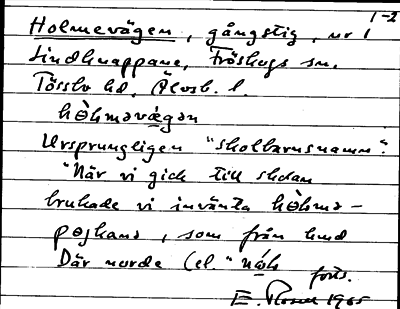 1-2
Holmevägen, gångstig, nr 1
Lindknappane, Fröskogs sn,
Tössbo hd, Älvsb. l.
hòlmǝvægǝn
Ursprungligen "skolbarnsnamn".
"När vi gick till skolan
brukade vi invänta hòlmǝ-
pojkana, som från
Där norde (el. "
forts.
E. 1965